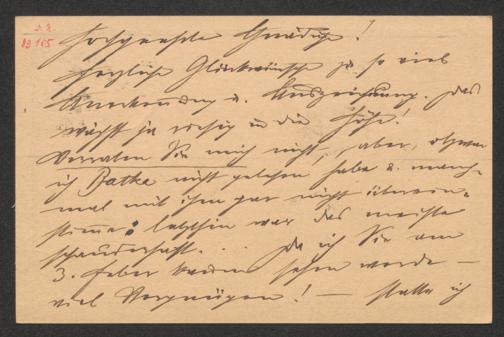 J. N.
Hochgeehrte Gnädige!
herzliche Glückwünsche zu so viel
Anerkennung u. Auszeichnung. Das
wächst ja riesig in die Höhe!
Verraten Sie mich nicht, aber, obzwar
ich Batka nicht gelesen habe u. manch-
mal mit ihm gar nicht überein-
stime: letzthin war das meiste
schauderhaft. . . Da ich Sie am
3. Feber kaum sehen werde —
viel Vergnügen! — Statte ich